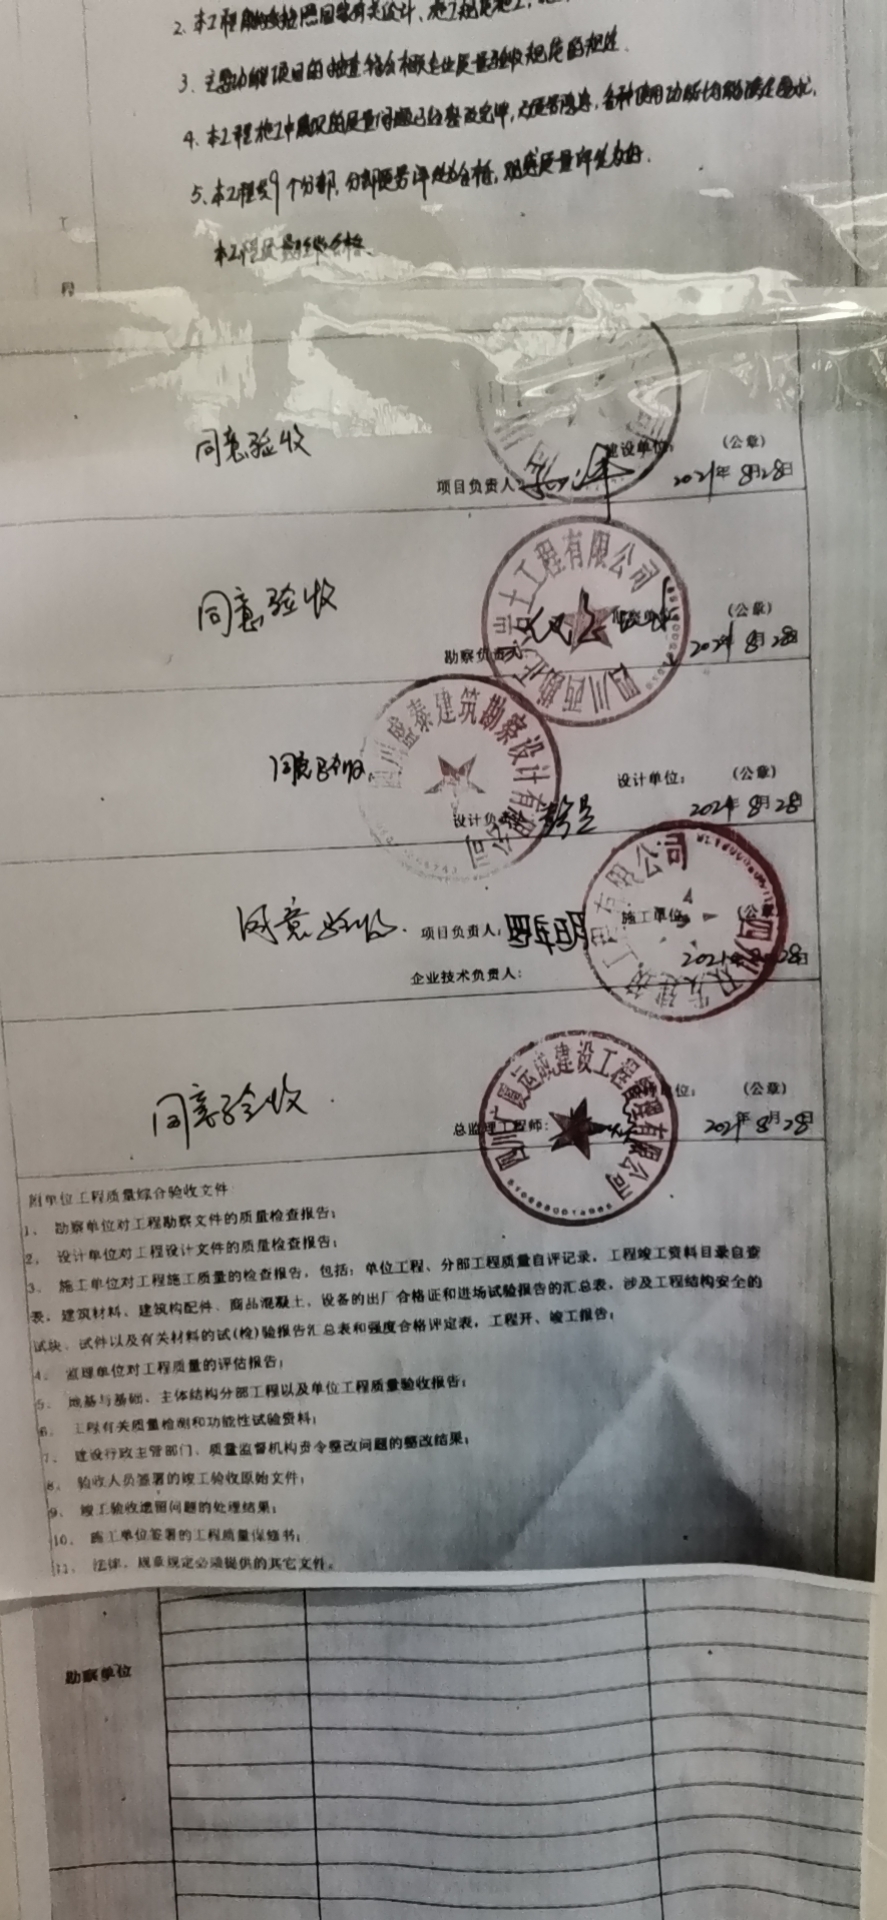 3、主要功能项目的抽查符合相关专业质量验收规范的规定.
4、本工程施工中
已经整改完毕,
各种使用功能均能满足要求.
5、本工程共9个分部,分部
评定为合格,观感质量评定为好.
本工程
合格.
工
程
同意验收
建设单位:
(公章)
项目负责人:
2021年8月28日
土工程有限公司
同意验收
(公章)
勘察负责
2021年8月28日
四川盛泰建筑勘察设计有限公司
同意验收
设计单位:
(公章)
设计负
2021年8月28日
同意验收.
项目负责人:
施工单位
(公章
企业技术负责人:
2021年8月28日
建筑工程有限公司
四川广厦运成建设工程管理有限公司
同意验收.
位:
(公章)
总监理工程师:
2021年8月28日
附单位工程质量综合验收文件
1、勘察单位对工程勘察文件的质量检查报告;
2、设计单位对工程设计文件的质量检查报告;
3、施工单位对工程施工质量的检查报告,包括:单位工程、分部工程质量自评记录,工程竣工资料目录自查
表,建筑材料、建筑构配件、商品混凝土、设备的出厂合格证和进场试验报告的汇总表,涉及工程结构安全的
试块、试件以及有关材料的试(检)验报告汇总表和强度合格评定表,工程开、竣工报告;
4、监理单位对工程质量的评估报告;
5、地基与基础、主体结构分部工程以及单位工程质量验收报告;
6、工程有关质量检测和功能性试验资料;
7、建设行政主管部门、质量监督机构责令整改问题的整改结果;
8、验收人员签署的竣工验收原始文件;
9、竣工验收遗留问题的处理结果;
10、施工单位签署的工程质量保修书;
11、法律、规章规定必须提供的其它文件。
勘察单位